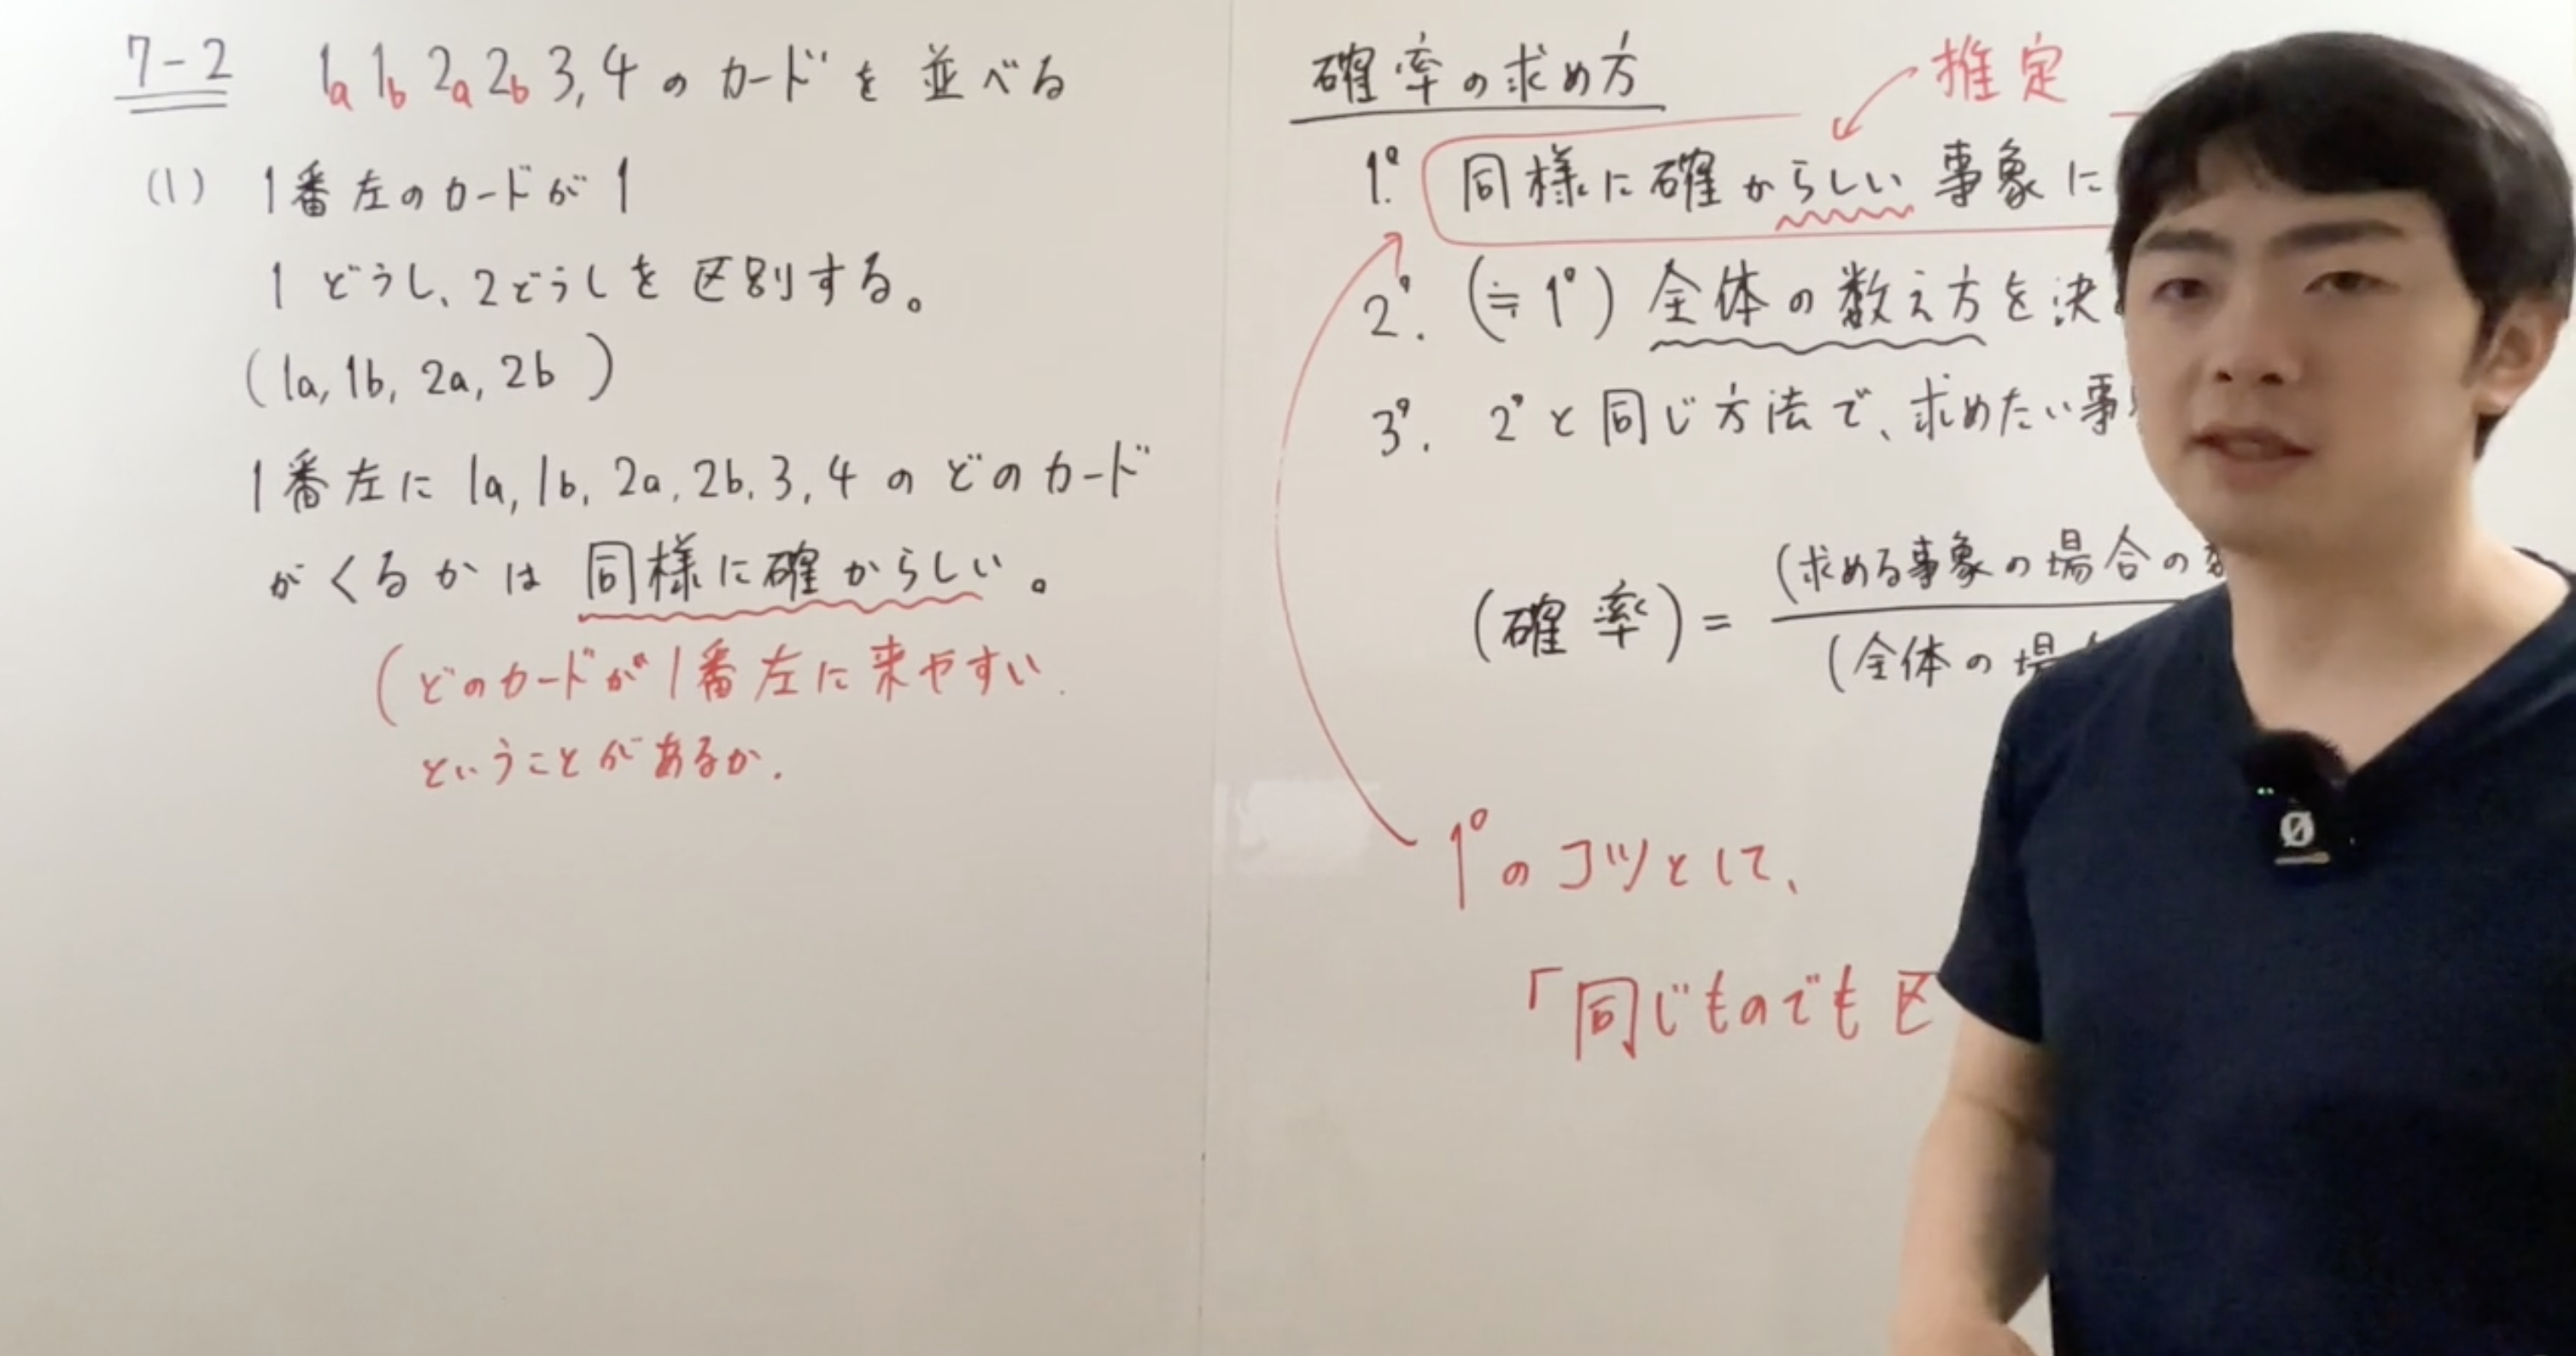 7-2 1a 1b 2a 2b 3, 4 の カード を 並べる
(1) 1番左のカードが 1
1 どうし、2どうしを 区別する。
(1a, 1b, 2a, 2b )
1番左に 1a, 1b, 2a, 2b, 3, 4 の どのカード
がくるかは 同様に確からしい。
(どのカードが1番左に来やすい
ということがあるか.
確率の求め方
推定
1°. 同様に確からしい 事象に
2°. (≒ 1°) 全体の数え方を決
3°. 2°と同じ方法で、求めたい事
(求める事象の場合の
(確率) =
(全体の場
1°のコツとして、
「同じものでも区
0